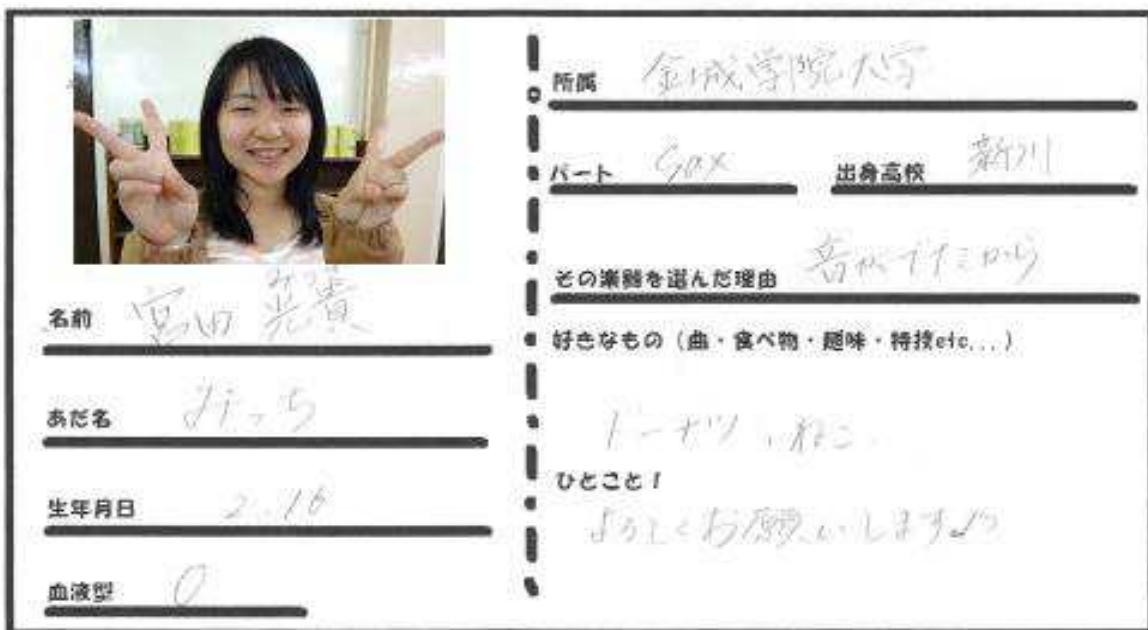 名前 宮田 光貴
みつき
あだ名 みっち
生年月日 2.16
血液型 O
所属 金城学院大学
パート Sax
出身高校 新川
その楽器を選んだ理由 音がイケ
好きなもの(曲・食べ物・趣味・特技etc...)
ドーナツ、ねこ
ひとこと!
よろしくお願いします♪